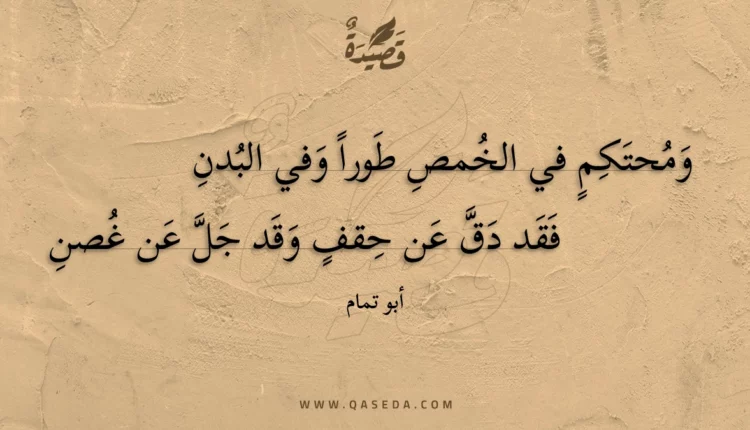 قَصِيدَةٌ
وَمُحتَكِمٍ في الخُمصِ طَوراً وَفي البُدنِ
فَقَد دَقَّ عَن حِقفٍ وَقَد جَلَّ عَن غُصنِ
أبو تمام
WWW.QASEDA.COM